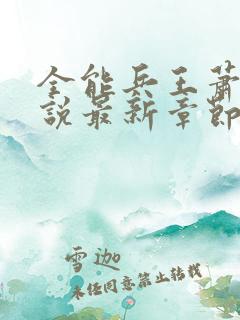 全能兵王蕭
說最新章節
雪迦
未经同意禁止转载